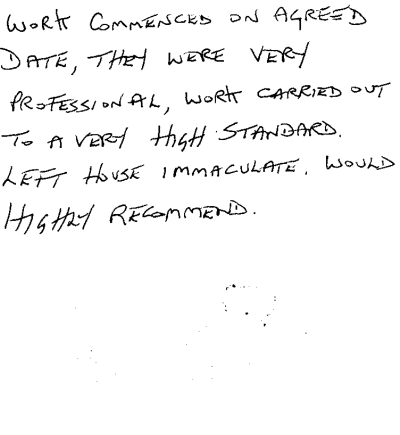 WORK COMMENCED ON AGREED
DATE, THEY WERE VERY
PROFESSIONAL, WORK CARRIED OUT
TO A VERY HIGH STANDARD.
LEFT HOUSE IMMACULATE. WOULD
HIGHLY RECOMMEND.